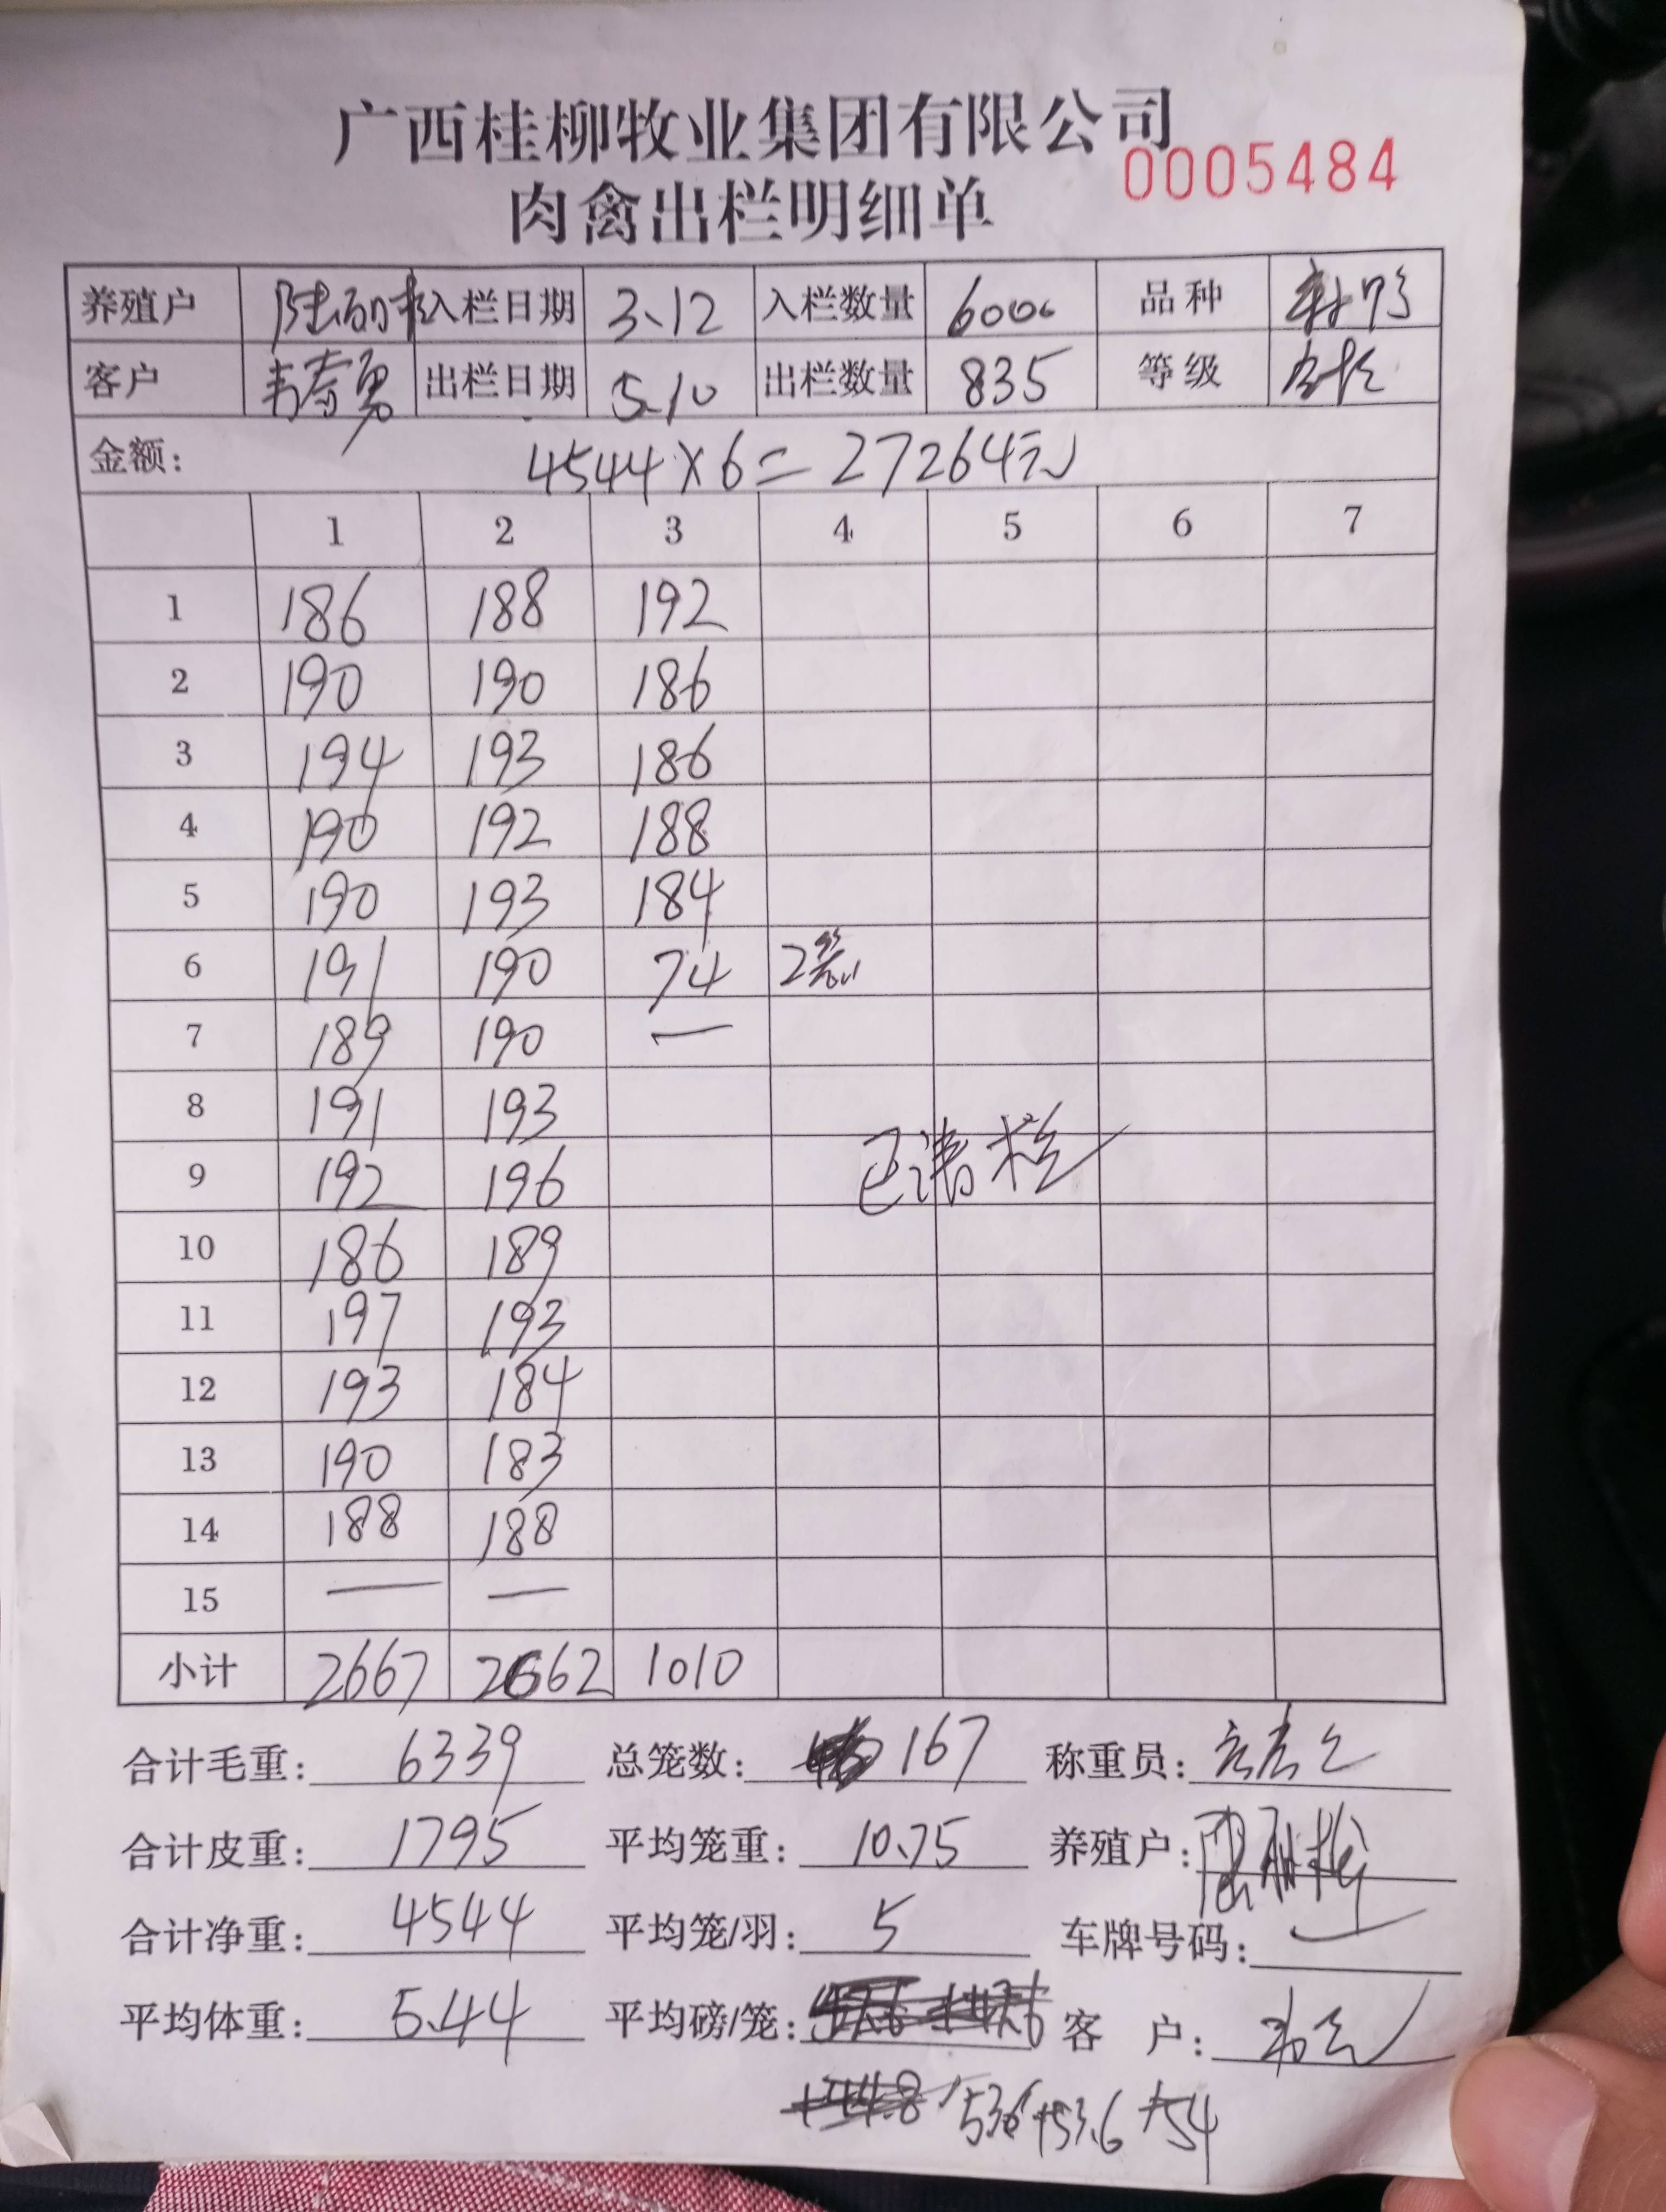 广西桂柳牧业集团有限公司
0005484
肉禽出栏明细单
养殖户 入栏日期 3.12 入栏数量 6000 品种
客户 韦泰勇 出栏日期 5.10 出栏数量 835 等级
金额: 4544×6=27264元
1 2 3 4 5 6 7
1 186 188 192
2 190 190 186
3 194 193 186
4 190 192 188
5 190 193 184
6 191 190 74 2笼
7 189 190 —
8 191 193
9 192 196
已清栏
10 186 189
11 197 193
12 193 184
13 190 183
14 188 188
15 — —
小计 2667 2662 1010
合计毛重: 6339 总笼数: 167 称重员:
合计皮重: 1795 平均笼重: 10.75 养殖户:
合计净重: 4544 平均笼/羽: 5 车牌号码:
平均体重: 5.44 平均磅/笼: 客 户:
53.6+53.6+54